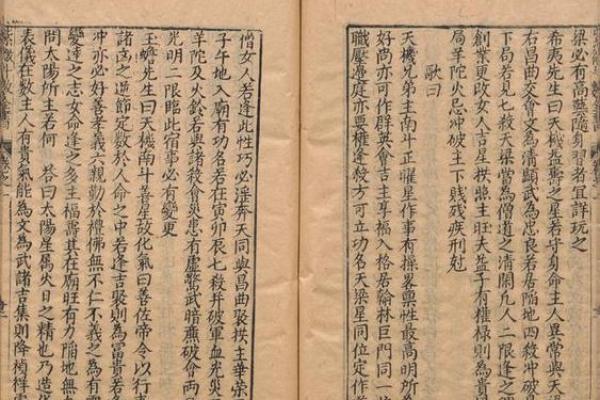 梁必有高藝隨身習者宜詳玩之
希夷先生曰天機益壽之星若守身命主人異常與天
右昌曲交會文為清顯武為忠良若居陷地四殺冲破
下局若見七殺天梁當為僧道之清閑凢人二限逢之
創業更改女人吉星拱照主旺夫益子有權祿則為貴
局羊陀火忌冲破主下賤殘疾刑尅
歌曰
天機兄弟主南斗正曜星作事有操畧禀性最高明所為
好尚亦可作群英會吉主享福入格居翰林巨門同一
職壓邉庭亦要權逢殺方可立功名天梁星同位定作
僧女人若逢此性巧必淫奔天同與昌曲聚拱主華榮
子午地入廟有功名若在寅卯辰七殺并破軍血光災
羊陀及火鈴若與諸殺會災患有虛驚武暗廉破會兩
光明二限臨此宿事必有變更
玉蟾先生曰天機南斗善星故化氣曰善佐帝令以行事
諸宮之逆節定數於人命之中若逢吉聚則為富貴若
冲亦必好善孝義六親勤於禮佛無不仁不義之為有
變達之志女命逢之多主福壽其在廟旺有力陷地無
問太陽所主若何 答曰太陽星属火日之精也乃造
表儀在數主人有貴氣能為文為武諸吉集則降禎祥